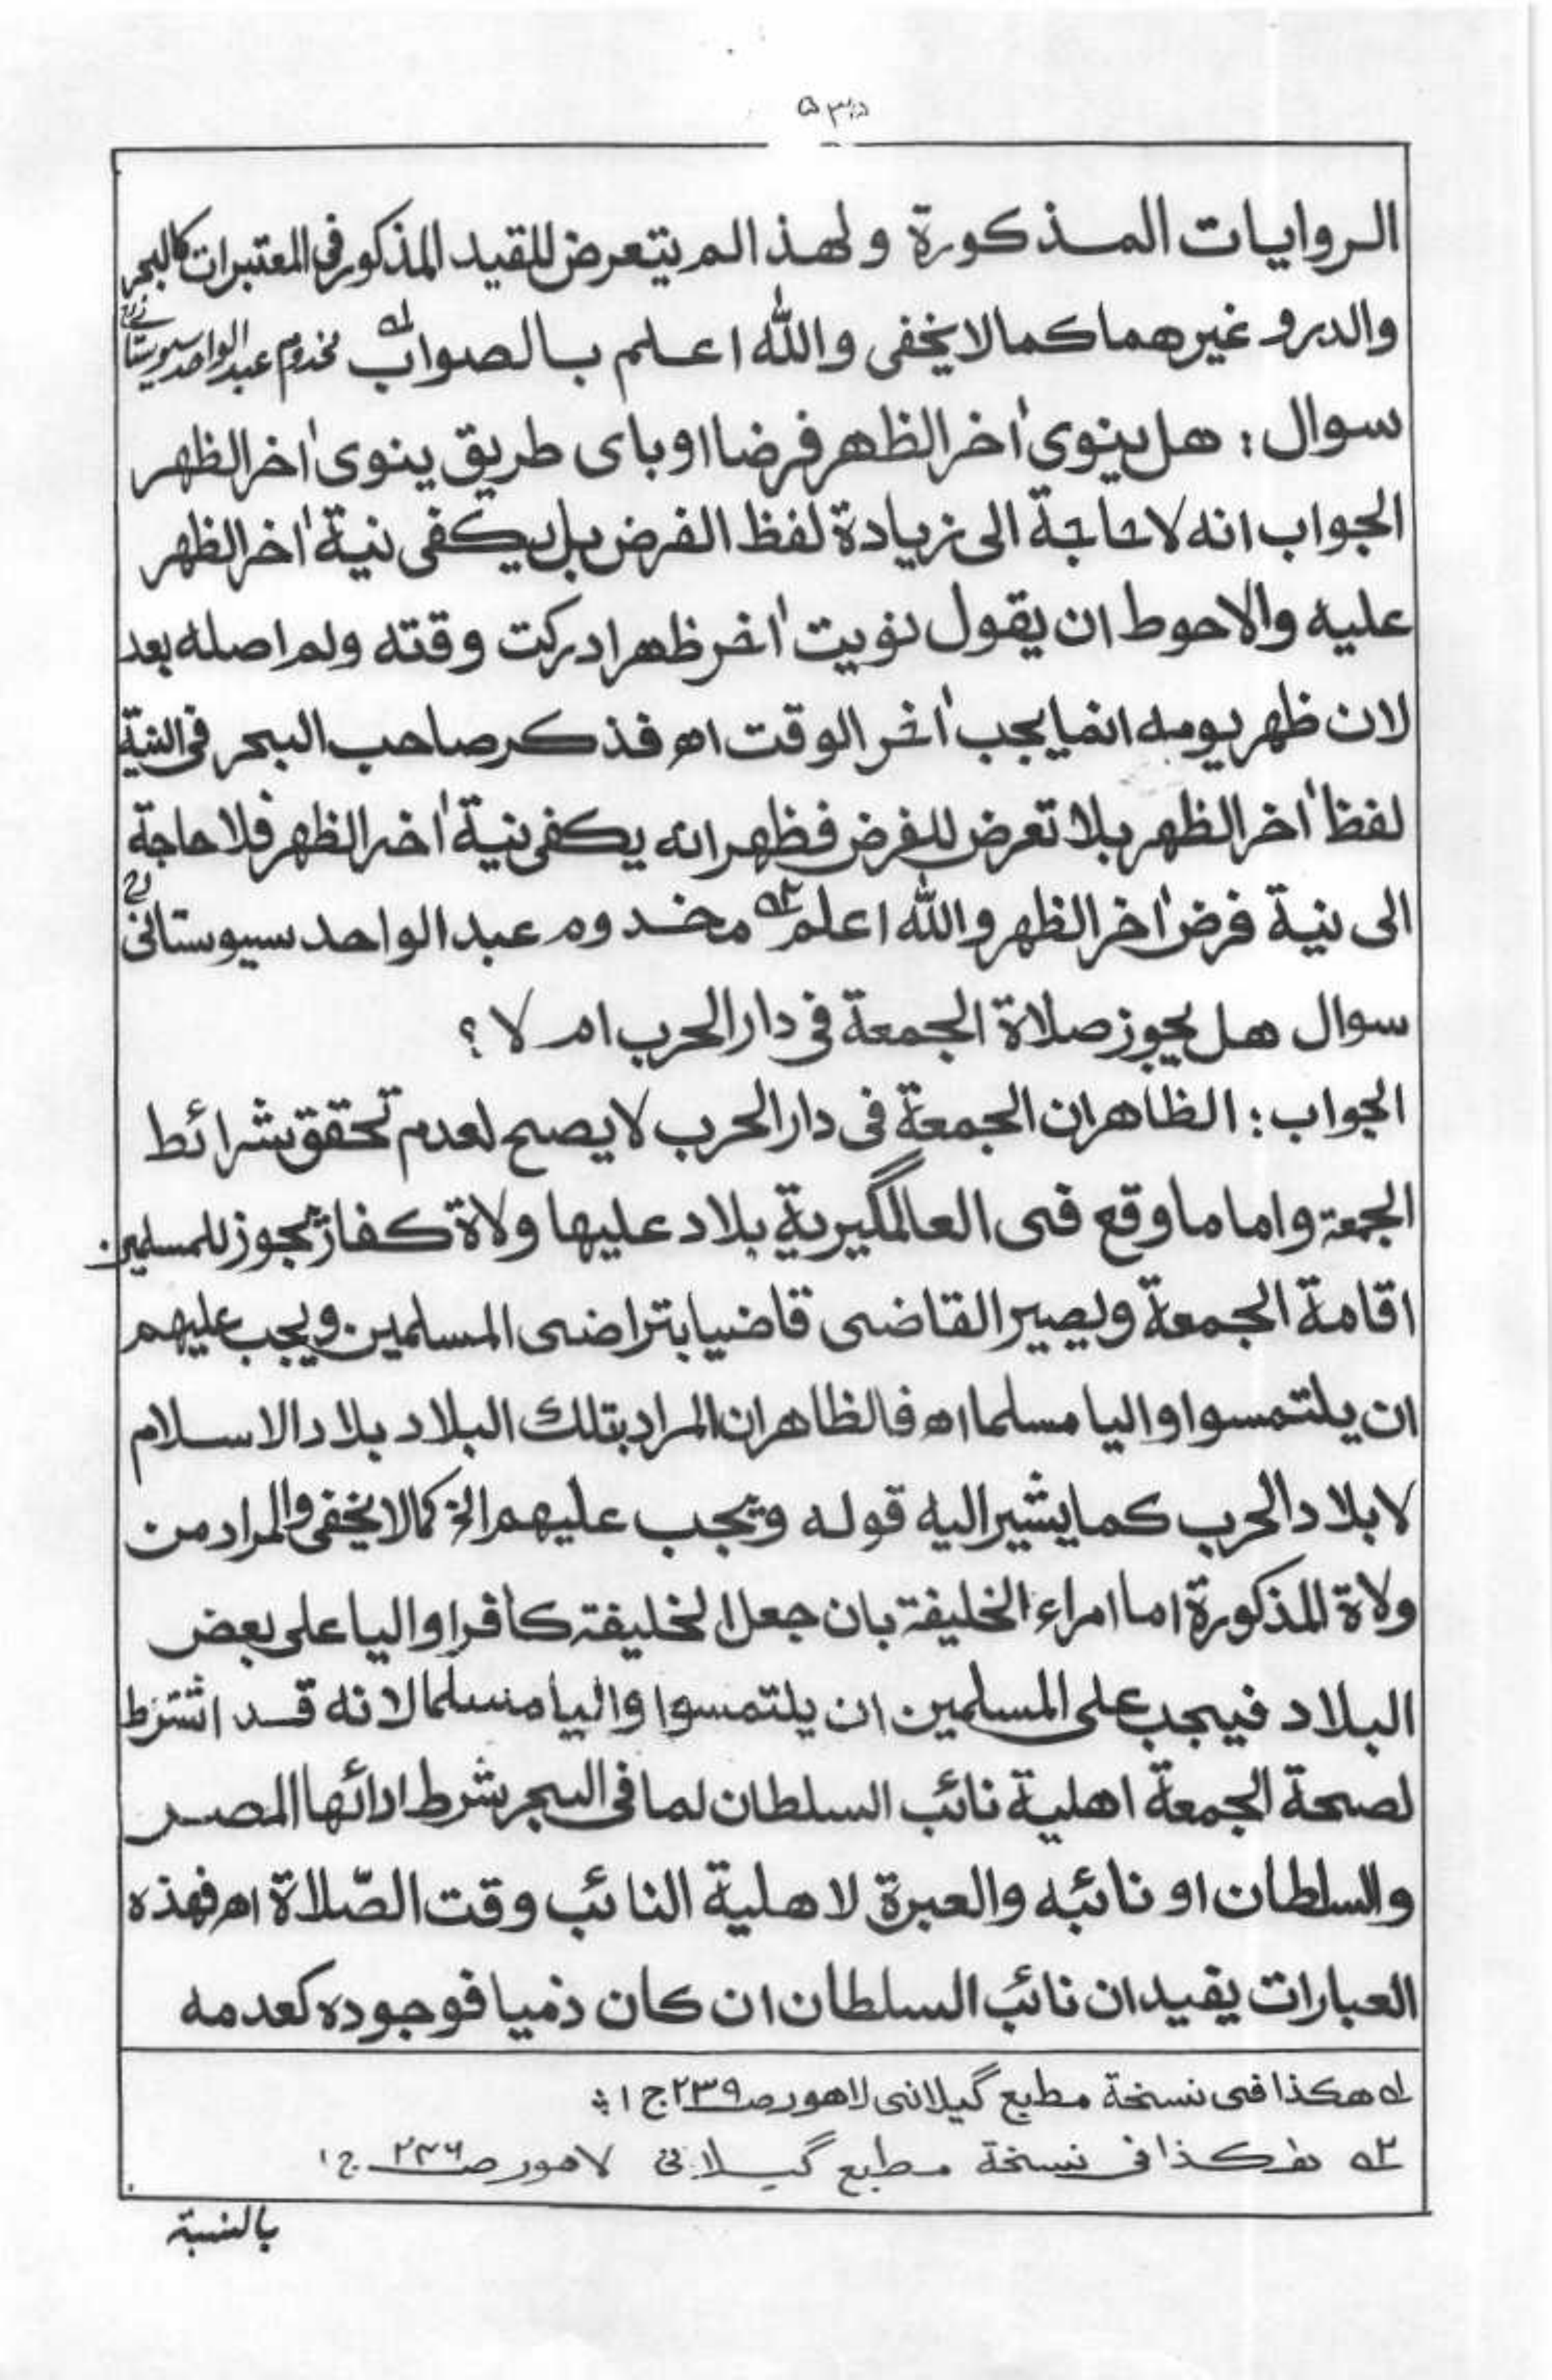 الروايات المذكورة ولهذا لم يتعرض للقيد المذكور في المعتبرات كالبحر
والدر وغيرهما كما لا يخفى والله اعلم بالصواب ١ مخدوم عبد الواحد سيوستاني رح
سوال : هل ينوى اٰخر الظهر فرضا او باى طريق ينوى اٰخر الظهر
الجواب انه لا حاجة الى زيادة لفظ الفرض بل يكفى نية اٰخر الظهر
عليه والاحوط ان يقول نويت اٰخر ظهر ادركت وقته ولم اصله بعد
لان ظهر يومه انما يجب اٰخر الوقت اه فذكر صاحب البحر فى النية
لفظ اٰخر الظهر بلا تعرض للفرض فظهر انه يكفى نية اٰخر الظهر فلا حاجة
الى نية فرض اٰخر الظهر والله اعلم ٢ مخدوم عبد الواحد سيوستانى رح
سوال هل يجوز صلاة الجمعة فى دار الحرب ام لا ؟
الجواب : الظاهر ان الجمعة فى دار الحرب لا يصح لعدم تحقق شرائط
الجمعة واما ما وقع فى العالمگيرية بلاد عليها ولاة كفار يجوز للمسلمين
اقامة الجمعة ويصير القاضى قاضيا بتراضى المسلمين ويجب عليهم
ان يلتمسوا واليا مسلما اه فالظاهر ان المراد بتلك البلاد بلاد الاسلام
لا بلاد الحرب كما يشير اليه قوله ويجب عليهم الخ كما لا يخفى والمراد من
ولاة المذكورة اما امراء الخليفة بان جعل الخليفة كافرا واليا على بعض
البلاد فيجب على المسلمين ان يلتمسوا واليا مسلما لانه قد اشترط
لصحة الجمعة اهلية نائب السلطان لما فى البحر شرط ادائها المصر
والسلطان او نائبه والعبرة لاهلية النائب وقت الصّلاة اه فهذه
العبارات يفيد ان نائب السلطان ان كان ذميا فوجوده كعدمه
١ هكذا فى نسخة مطبع گيلانى لاهور صـ ٢٣٩ ج ١
٢ هكذا فى نسخة مطبع گيلانى لاهور صـ ٢٣٦ ج ١
بالنسبة